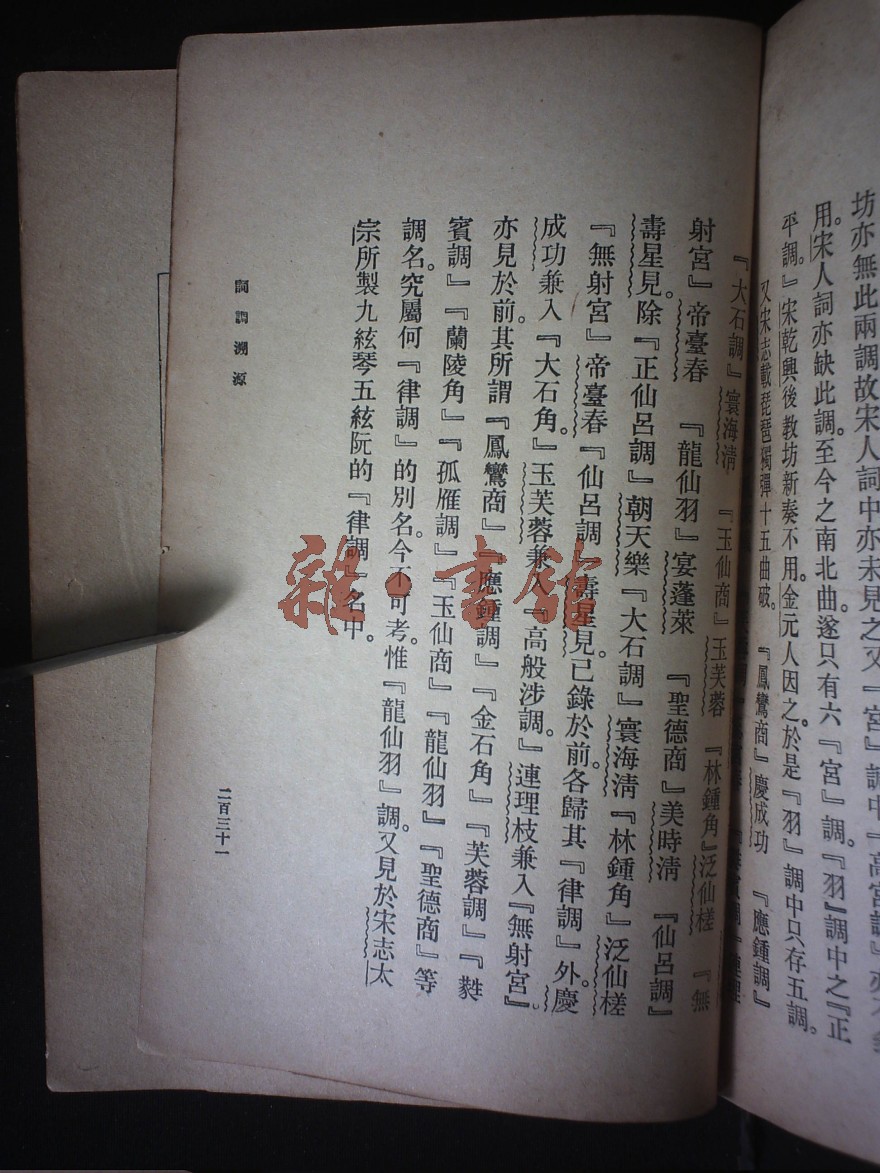 坊亦無此兩調故宋人詞中亦未見之又一『宮』調中『高宮調』亦
用。宋人詞亦缺此調。至今之南北曲遂只有六『宮』調。『羽』調中之『正
平調。』宋乾興後教坊新奏不用。金元人因之。於是『羽』調中只存五調。
又宋志載琵琶獨彈十五曲破。『鳳鸞商』慶成功　『應鍾調』
『大石調』寰海淸　『玉仙商』玉芙蓉　『林鍾角』泛仙槎　『無
射宮』帝臺春　『龍仙羽』宴蓬萊　『聖德商』美時淸　『仙呂調』
壽星見。除『正仙呂調』朝天樂『大石調』寰海淸『林鍾角』泛仙槎
『無射宮』帝臺春『仙呂調』壽星見。已錄於前。各歸其『律調』外。慶
成功兼入『大石角。』玉芙蓉兼入『高般涉調。』連理枝兼入『無射宮』。
亦見於前。其所謂『鳳鸞商』『應鍾調』『金石角』『芙蓉調』『蕤
賓調』『蘭陵角』『孤雁調』『玉仙商』『龍仙羽』『聖德商』等
調名。究屬何『律調』的別名。今不可考。惟『龍仙羽』調。又見於宋志太
宗所製九絃琴五絃阮的『律調』名中。
詞調溯源
二百三十一
雜·書館